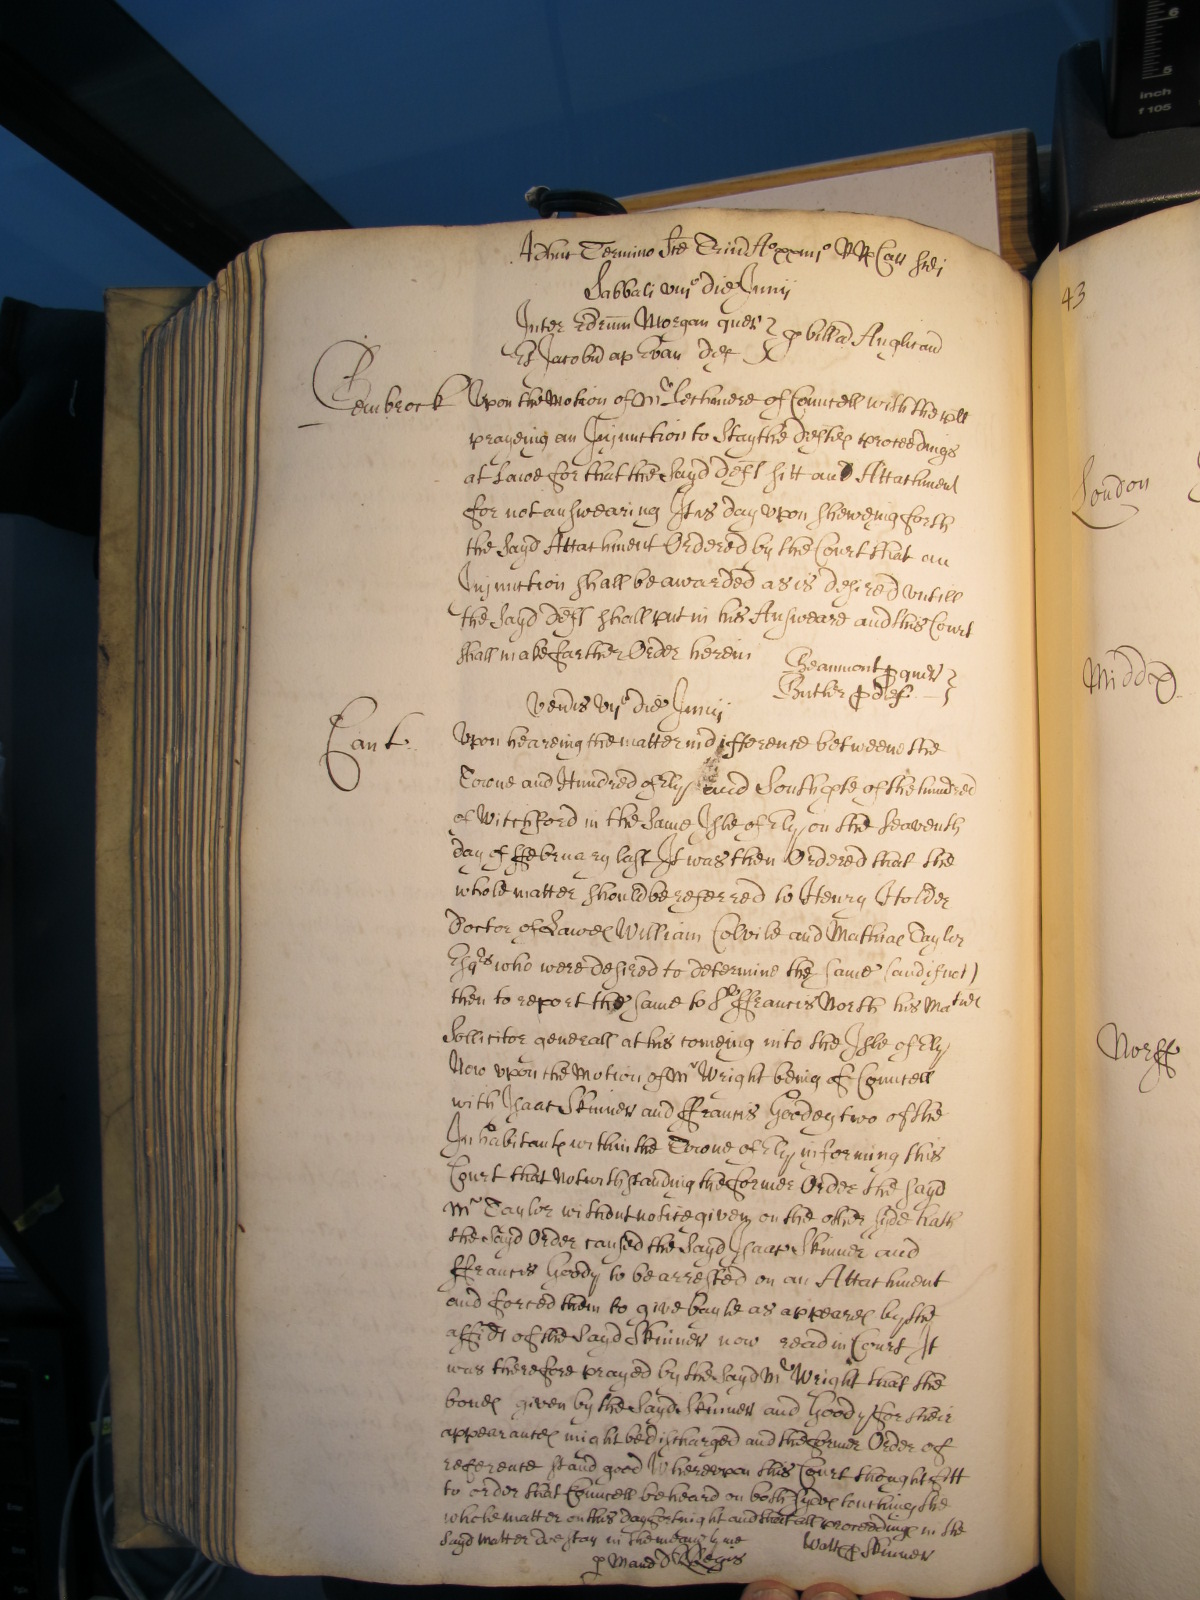 Adhuc Termino Ste Trin Ao xxiiijo RRs Car Scdi
Sabbati viijo die Junij
Inter Edrum Morgan quer } p billa Anglican
Et Jacobu ap Evan def
Pembrock Upon the Motion of Mr Lechmere of Councell with the plt
prayeing an Injunction to Stay the defts proceedings
at Lawe for that the Sayd deft sitt an Attachment
for not answearing It is this day upon sheweing forth
the Sayd Attachment Ordered by the Court that an
Injunction shall be awarded as is desired untill
the Sayd deft shall put in his Answeare and this Court
shall make farther Order herein
Beaumont p quer
Butler p def
Venis vijo die Junij
Cant. Upon heareing the matter in difference betweene the
Towne and Hundred of Ely and South pte of the hundred
of Witchford in the Same Isle of Ely on the Seaventh
day of ffebruary last It was then Ordered that the
whole matter should be referred to Henry Holder
Doctor of Lawes William Colvile and Mathias Taylor
Esqrs who were desired to determine the same (and if not)
then to report the same to Sr ffrancis North his Maties
Sollicitor generall at his comeing into the Isle of Ely
Now upon the Motion of Mr Wright being of Councell
with Isaac Skinner and ffrancis Goodey two of the
Inhabitants within the Towne of Ely informing this
Court that Notwithstanding the former Order the sayd
Mr Taylor without notice given on the other side hath
the Sayd Order caused the Sayd Isaac Skinner and
ffrancis Goody to be arrested on an Attachment
and forced them to give bayle as appeares by the
affidt of the Sayd Skinner now read in Court It
was therefore prayed by the Sayd Mr Wright that the
bones given by the Sayd Skinner and Goody for their
appearances might be discharged and the former Order of
reference stand good Whereupon this Court thought fitt
to order that Councell be heard on both Sydes touching the
whole matter on this day fortnight and that all proceedings in the
Sayd matter doe stay in the meane tyme
Watts p Skinner
p Mand R Regis
43
London
Midds
Norff